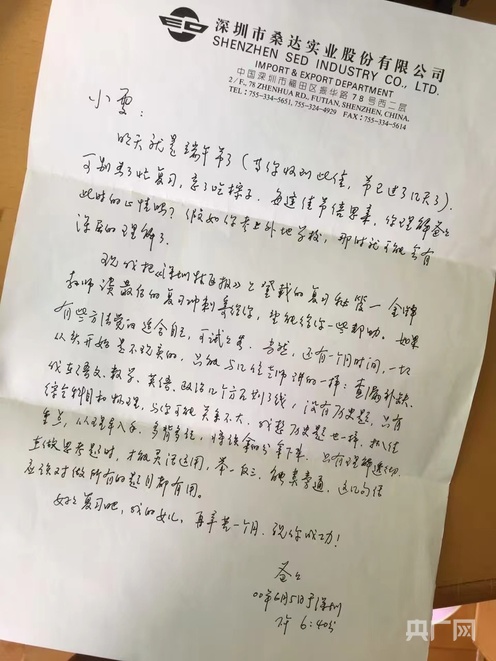 深圳市桑达实业股份有限公司
SHENZHEN SED INDUSTRY CO., LTD.
IMPORT & EXPORT DEPARTMENT
中国深圳市福田区振华路78号西二层
2/F., 78 ZHENHUA RD., FUTIAN, SHENZHEN, CHINA.
TEL: 755-334-5651, 755-324-4929 FAX: 755-334-5614
小雯：
明天就是端午节了（当你收到此信，节已过了几天了）．
可别为了忙复习，忘了吃粽子．每逢佳节倍思亲，你理解爸爸
此时的心情吗？假如你考上外地学校，那时就可能会有
深层的理解了．
现我把《深圳特区报》上登载的复习秘笈一金牌
教师谈最后的复习冲刺寄给你，望能给你一些帮助．如果
有些方法觉的适合自己，可试之．当然，还有一个月时间，一切
从头开始是不现实的，只能与几位老师讲的一样：查漏补缺．
我在语文、数学、英语、政治几个方面划了线，没有历史题，只有
综合科目和物理，与你可能关系不大．我想历史题也一样，抓住
重点，从理解入手，多背多记，将该拿的分拿下来．只有理解透切，
在做思考题时，才能灵活运用，举一反三，触类旁通，这几句话
应该对做所有的题目都有用。
好好复习吧，我的女儿，再辛苦一个月．祝你成功！
爸爸
00年6月5日于深圳
6:40分
央广网